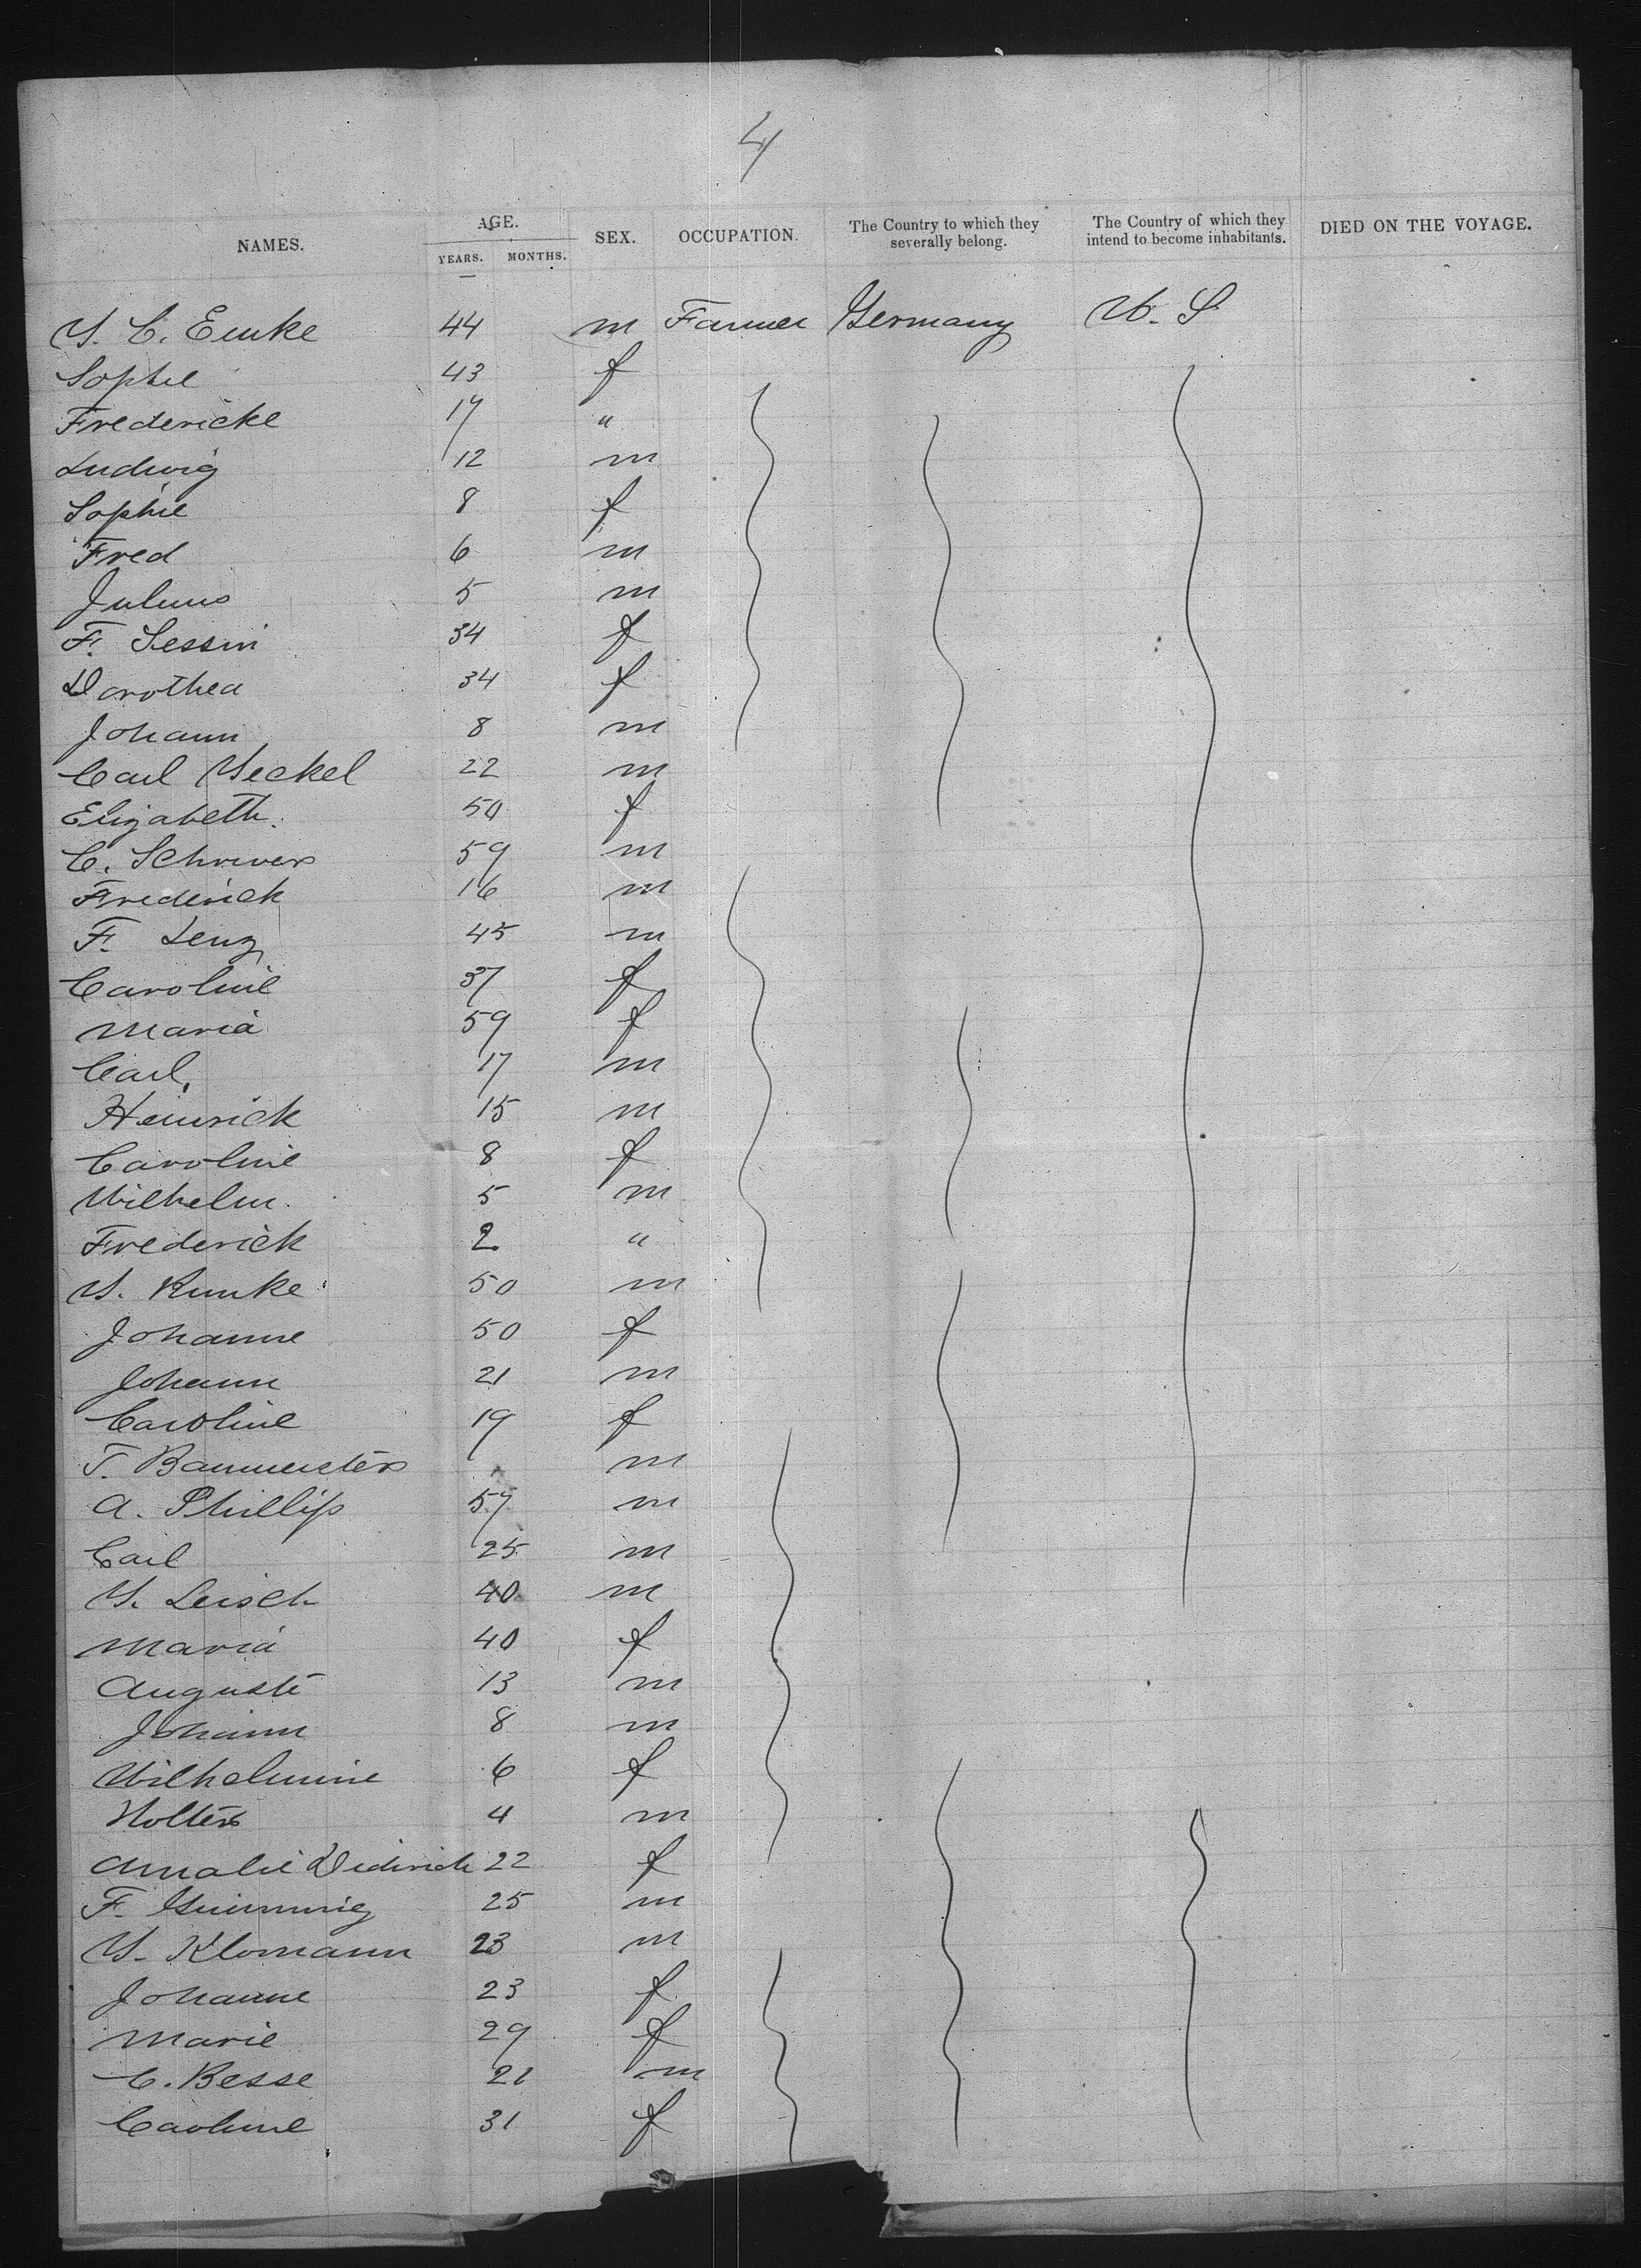 4
NAMES. AGE. YEARS. MONTHS. SEX. OCCUPATION. The Country to which they severally belong. The Country of which they intend to become inhabitants. DIED ON THE VOYAGE.
44 m Farmer Germany U. S
Sophie 43 f
Fredericke 17 "
Ludwig 12 m
Sophie 8 f
Fred 6 m
Julius 5 m
F. Sessin 34 f
Dorothea 34 f
Johann 8 m
Carl 22 m
Elizabeth. 50 f
C. 59 m
Frederick 16 m
F. Lenz 45 m
Caroline 37 f
Maria 59 f
Carl. 17 m
Heinrich 15 m
Caroline 8 f
Wilhelm. 5 m
Frederick 2 "
Runke 50 m
Johanne 50 f
Johann 21 m
Caroline 19 f
Baumeister m
A. Phillip 57 m
Carl 25 m
40 m
Maria 40 f
Auguste 13 m
Johann 8 m
Wilhelmine 6 f
4 m
Amalie Diedrich 22 f
F. 25 m
Klomann 23 m
Johanne 23 f
Marie 29 f
C. Besse 21 m
Caroline 31 f